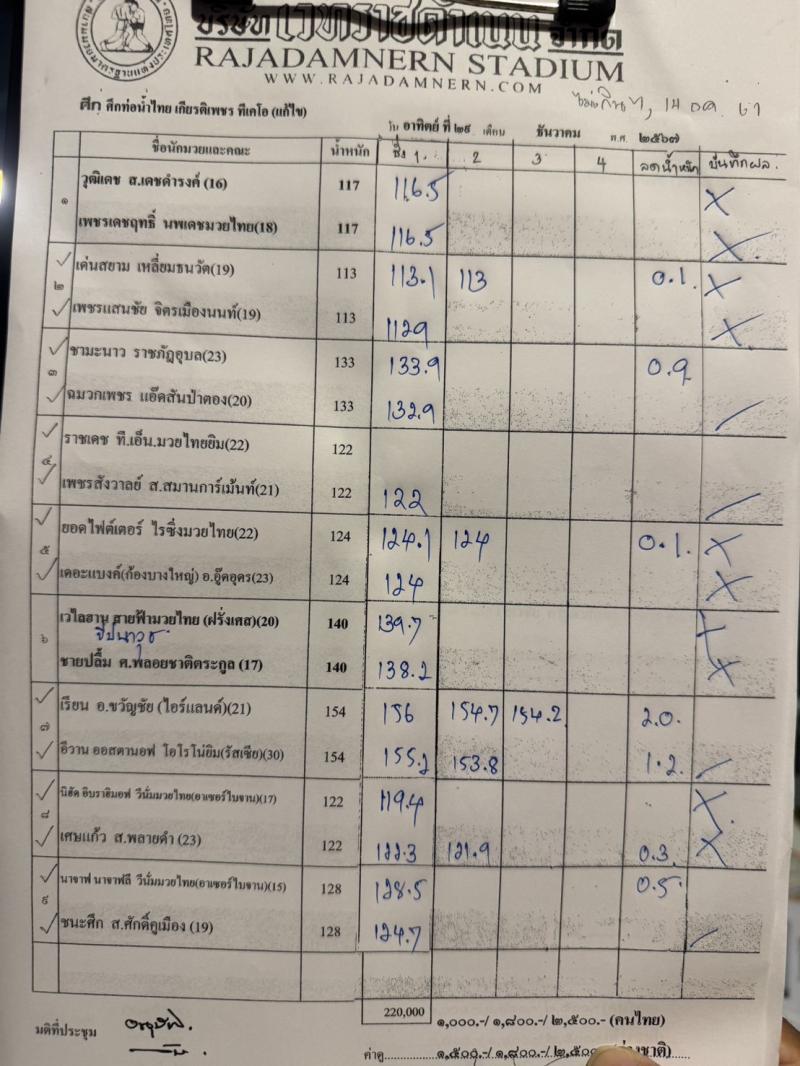 บริษัท เวทีราชดำเนิน จำกัด
RAJADAMNERN STADIUM
WWW.RAJADAMNERN.COM
ศึก ศึกท่อน้ำไทย เกียรติเพชร ทีเคโอ (แก้ไข)
วัน อาทิตย์ ที่ ๒๙ เดือน ธันวาคม พ.ศ. ๒๕๖๗
ชื่อนักมวยและคณะ น้ำหนัก ชั่ง 1. 2 3 4 ลดน้ำหนัก บันทึกผล.
๑ วุฒิเดช ส.เดชดำรงค์ (16) 117 116.5 X
เพชรเดชฤทธิ์ นพเดชมวยไทย(18) 117 116.5 X
๒ เด่นสยาม เหลี่ยมธนวัต(19) 113 113.1 113 0.1. X
เพชรแสนชัย จิตรเมืองนนท์(19) 113 112.9 X
๓ ชามะนาว ราชภัฏอุบล(23) 133 133.9 0.9
ฉมวกเพชร แอ๊ดสันป่าตอง(20) 133 132.9
๔ ราชเดช ที.เอ็น.มวยไทยยิม(22) 122
เพชรสังวาลย์ ส.สมานการ์เม้นท์(21) 122 122
๕ ยอดไฟต์เตอร์ ไรซิ่งมวยไทย(22) 124 124.1 124 0.1. X
เดอะแบงค์(ก้องบางใหญ่) อ.อู๊ดอุดร(23) 124 124 X
๖ เวไลฮาน สายฟ้ามวยไทย (ฝรั่งเศส)(20) 140 139.7 X
ชายปลื้ม ศ.พลอยชาติตระกูล (17) 140 138.2 X
๗ เรียน อ.ขวัญชัย (ไอร์แลนด์)(21) 154 156 154.7 154.2 2.0.
อีวาน ออสตานอฟ โอโรโน่ยิม(รัสเซีย)(30) 154 155.2 153.8 1.2.
๘ นิฮัด อิบราฮิมอฟ วีนั่มมวยไทย(อาเซอร์ไบจาน)(17) 122 119.4 X
เศษแก้ว ส.พลายดำ (23) 122 122.3 121.9 0.3 X
๙ นาจาฟ นาจาฟลี วีนั่มมวยไทย(อาเซอร์ไบจาน)(15) 128 128.5 0.5
ชนะศึก ส.ศักดิ์คูเมือง (19) 128 124.7
220,000 ๑,๐๐๐.-/ ๑,๘๐๐.-/ ๒,๕๐๐.- (คนไทย)
มติที่ประชุม
ค่าดู ๑,๕๐๐.-/ ๑,๘๐๐.-/ ๒,๕๐๐